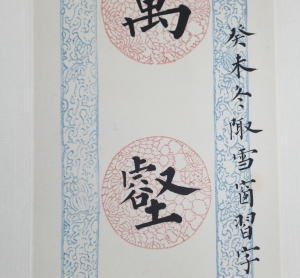 癸未冬陬雪窗習字
萬壑